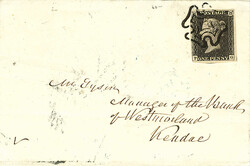 POSTAGE
ONE PENNY
Mr Tyson
Manager of the Bank
of Westmorland
Kendal